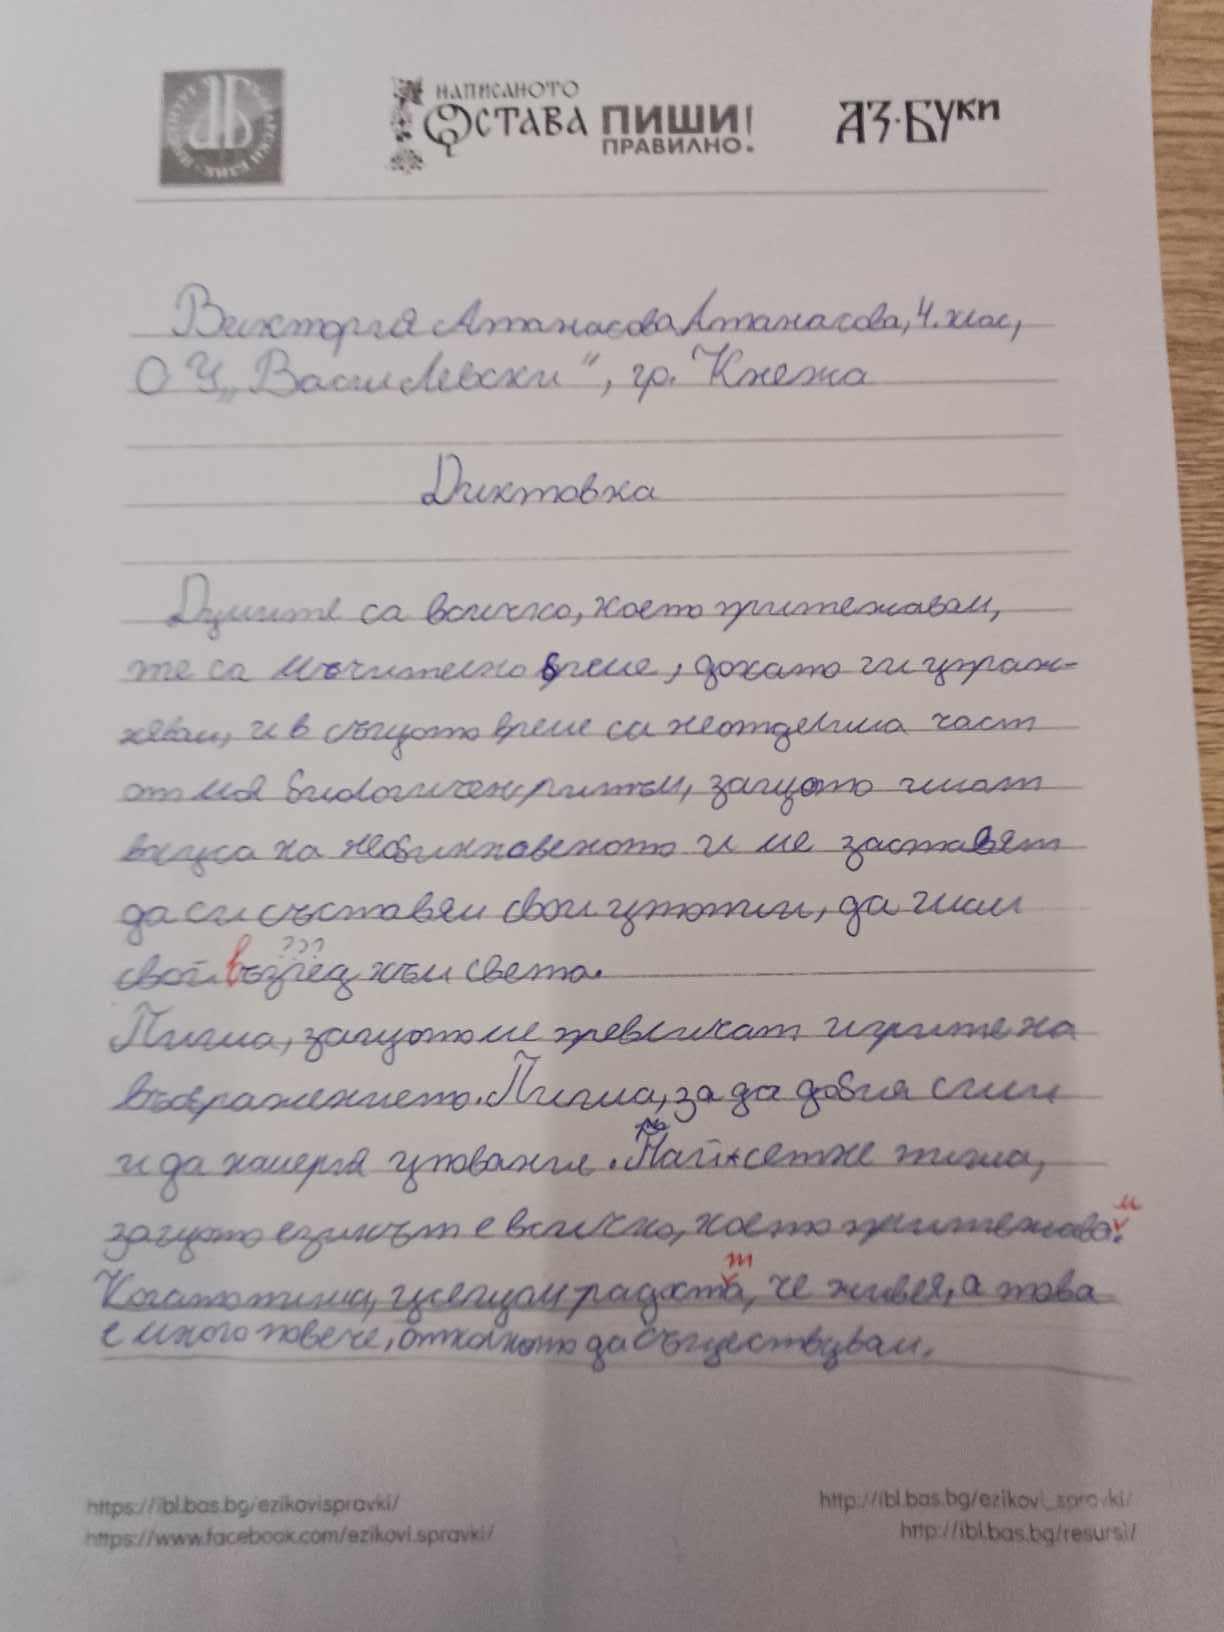 НАПИСАНОТО
ОСТАВА ПИШИ!
ПРАВИЛНО.
АЗ·БУКИ
Виктория Атанасова Атанасова, 4. клас,
ОУ „Васил Левски“, гр. Кнежа
Диктовка
Думите са всичко, което притежавам,
те са мъчително време, докато ги упраж-
нявам, и в същото време са неотделима част
от моя биологичен ритъм, защото имат
вкуса на необикновеното и ме заставят
да си съставям свои утопии, да имам
свой възглед към света.
Пиша, защото ме превличат игрите на
въображението. Пиша, за да добия сили
и да намеря упование. Най-сетне пиша,
защото езикът е всичко, което притежавам.
Когато пиша, усещам радостта, че живея, а това
е много повече, отколкото да съществувам.
https://ibl.bas.bg/ezikovispravki/
http://ibl.bas.bg/ezikovi_spravki/
https://www.facebook.com/ezikovi.spravki/
http://ibl.bas.bg/resursi/